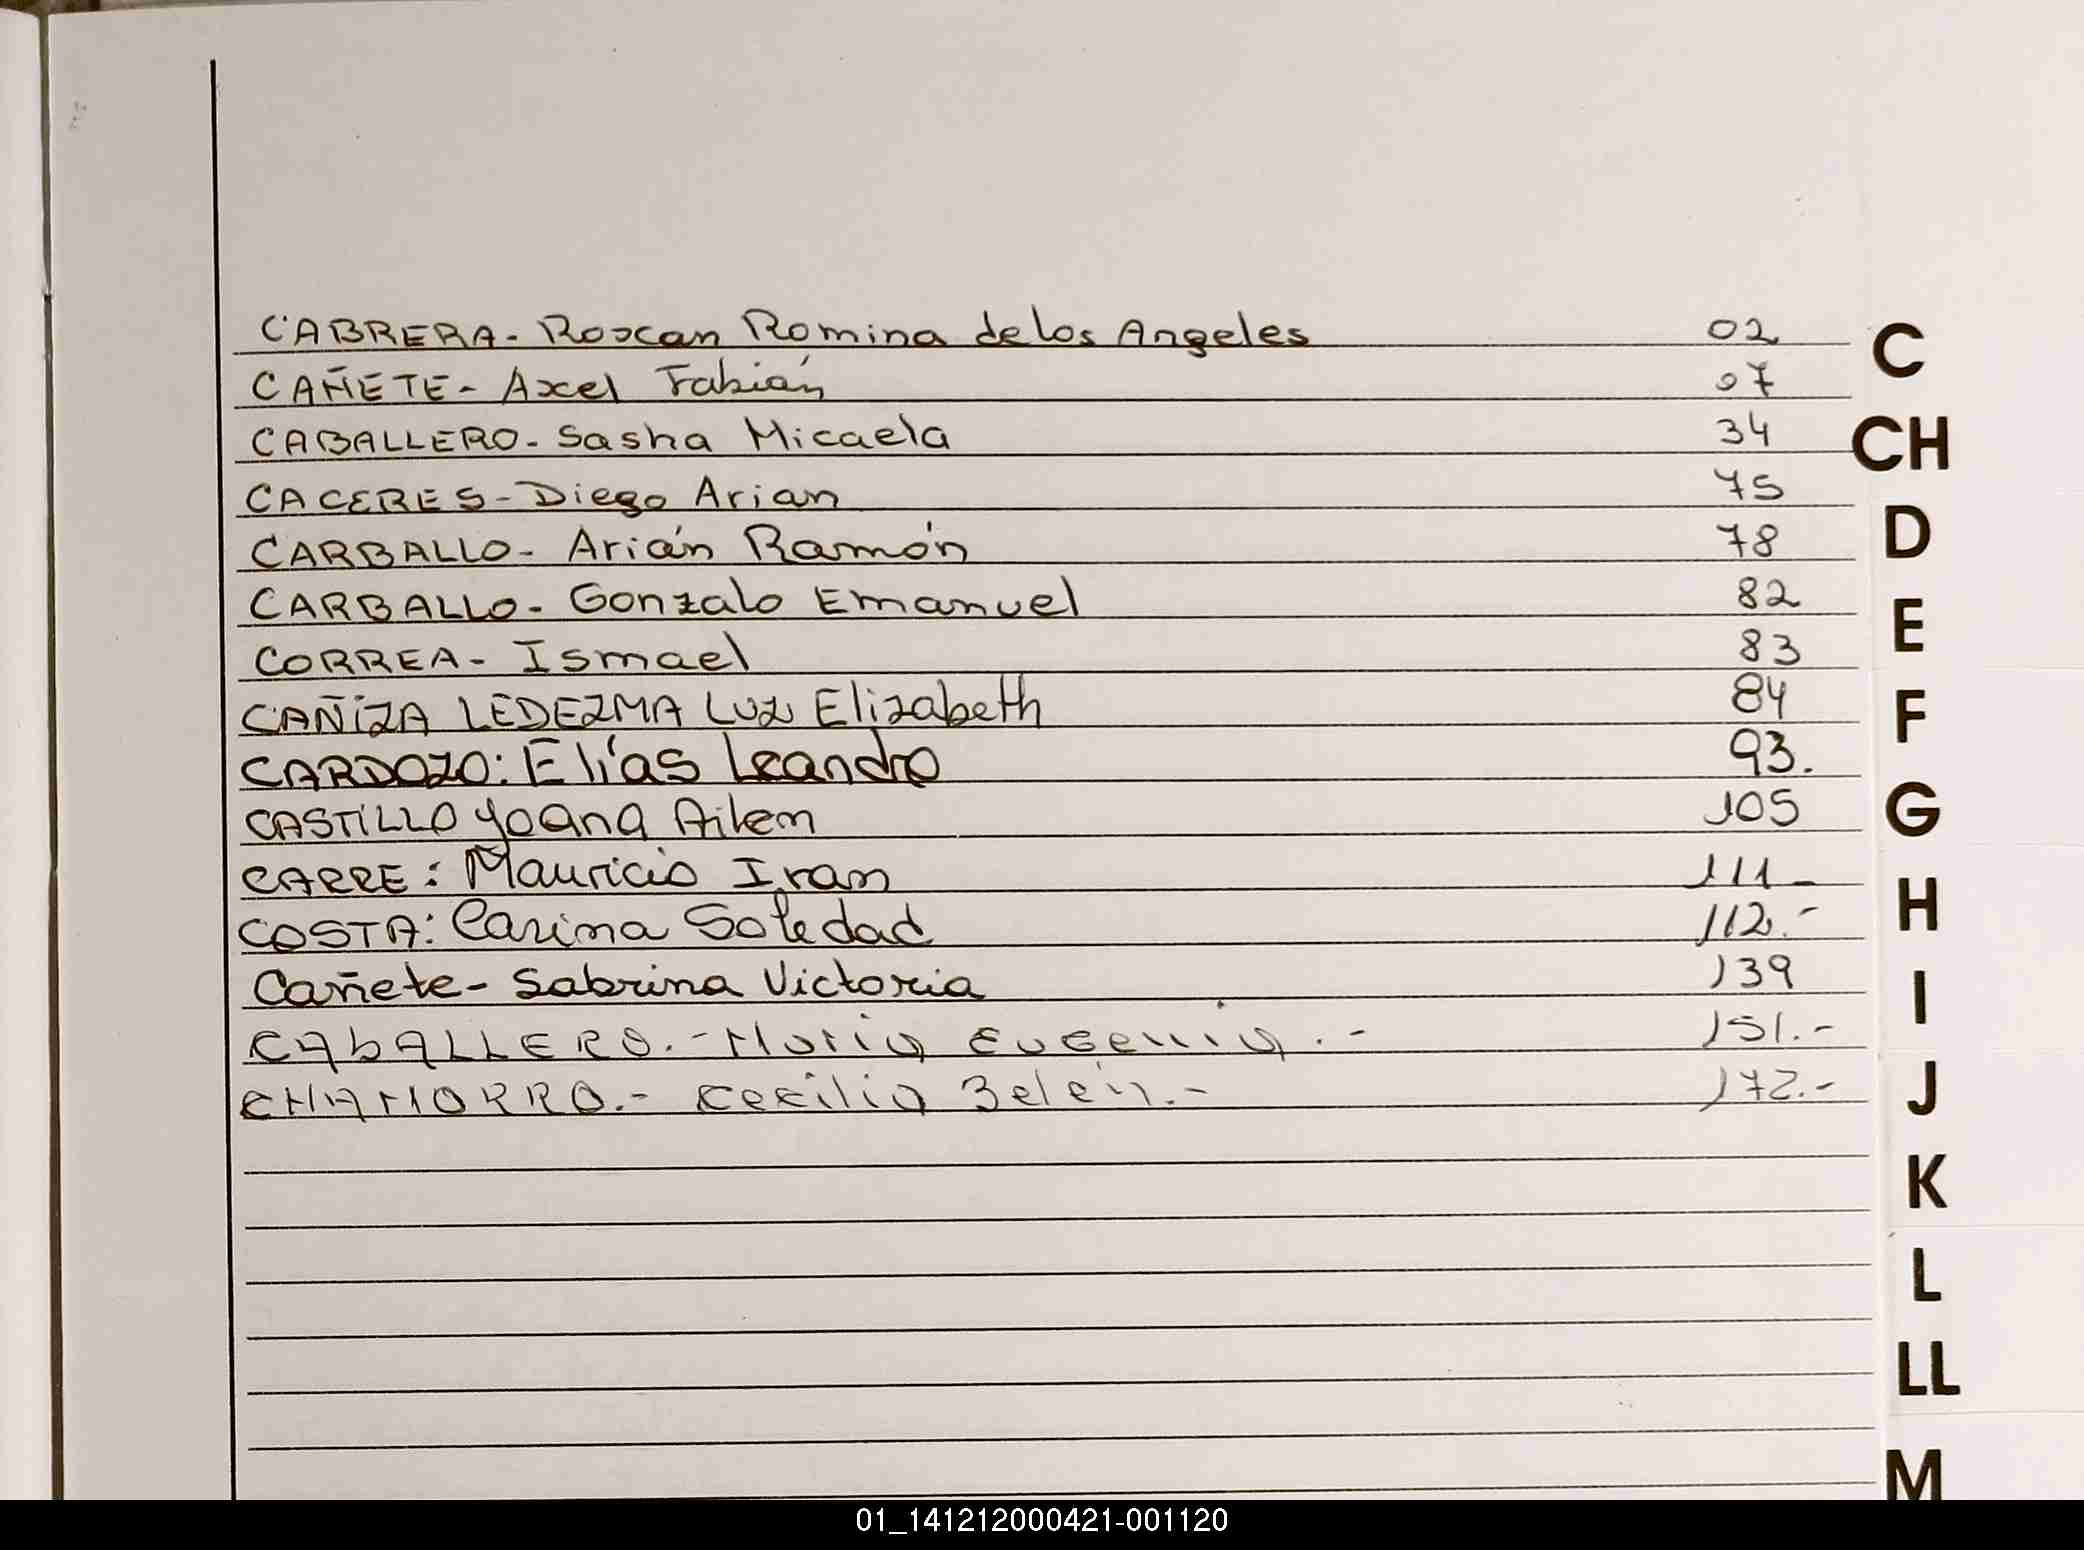 CABRERA - Roxan Romina de los Angeles 02
CAÑETE - Axel Fabián 07
CABALLERO - Sasha Micaela 34
CACERES - Diego Arian 75
CARBALLO - Arián Ramón 78
CARBALLO - Gonzalo Emanuel 82
CORREA - Ismael 83
CAÑIZA LEDEZMA Luz Elizabeth 84
CARDOZO: Elías Leandro 93.
CASTILLO Yoana Ailem 105
CARRE: Mauricio Ivan 111 -
COSTA: Carina Soledad 112.-
Cañete - Sabrina Victoria 139
CABALLERO.- Maria Eugenia.- 151.-
CHAMORRO.- Cecilia Belén.- 172.-
C
CH
D
E
F
G
H
I
J
K
L
LL
M
01_141212000421-001120